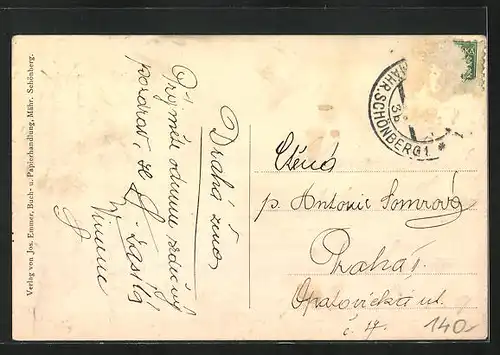 Verlag von Jos. Emmer, Buch- u. Papierhandlung, Mähr. Schönberg.
Drahá
Přijměte odemne srdečný
pozdrav, ze
MÄHR. SCHÖNBERG 1 *
3b
Ctěná
p. Antonie
Praha I.
Opatovická ul.
č. 17.
140.-